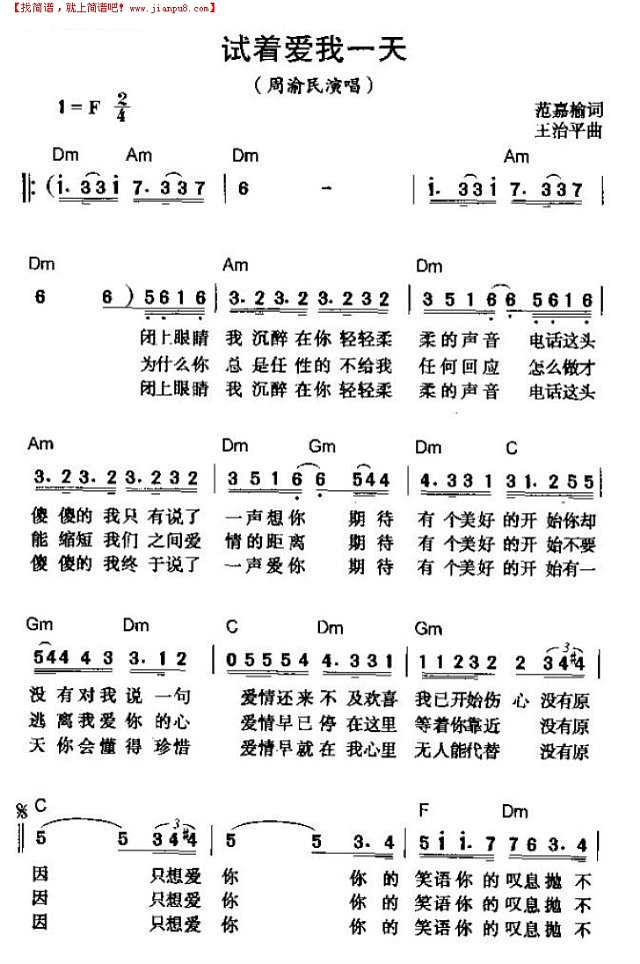 【找简谱，就上简谱吧! www.jianpu8.com】
试着爱我一天
（周渝民演唱）
1=F 2/4
范嘉榆词
王治平曲
Dm Am Dm Am
(i. 33i 7. 337 6 - i. 33i 7. 337
Dm Am Dm
6 6 ) 5616 3.23.2 3.232 3516 6 5616
闭上眼睛 我沉醉在你轻轻柔 柔的声音 电话这头
为什么你 总是任性的不给我 任何回应 怎么做才
闭上眼睛 我沉醉在你轻轻柔 柔的声音 电话这头
Am Dm Gm Dm C
3.23.2 3.232 3516 6 544 4.331 31.255
傻傻的我只有说了 一声想你 期待 有个美好的开始你却
能缩短我们之间爱 情的距离 期待 有个美好的开始不要
傻傻的我终于说了 一声爱你 期待 有个美好的开始有一
Gm Dm C Dm Gm
544 4 3 3. 12 05554 4.331 11232 2 34#4
没有对我说一句 爱情还来不及欢喜 我已开始伤心 没有原
逃离我爱你的心 爱情早已停在这里 等着你靠近 没有原
天你会懂得珍惜 爱情早就在我心里 无人能代替 没有原
C F Dm
5 5 34#4 5 5 3.4 5ii.7 763.4
因 只想爱 你 你的 笑语你的叹息抛不
因 只想爱 你 你的 笑语你的叹息抛不
因 只想爱 你 你的 笑语你的叹息抛不